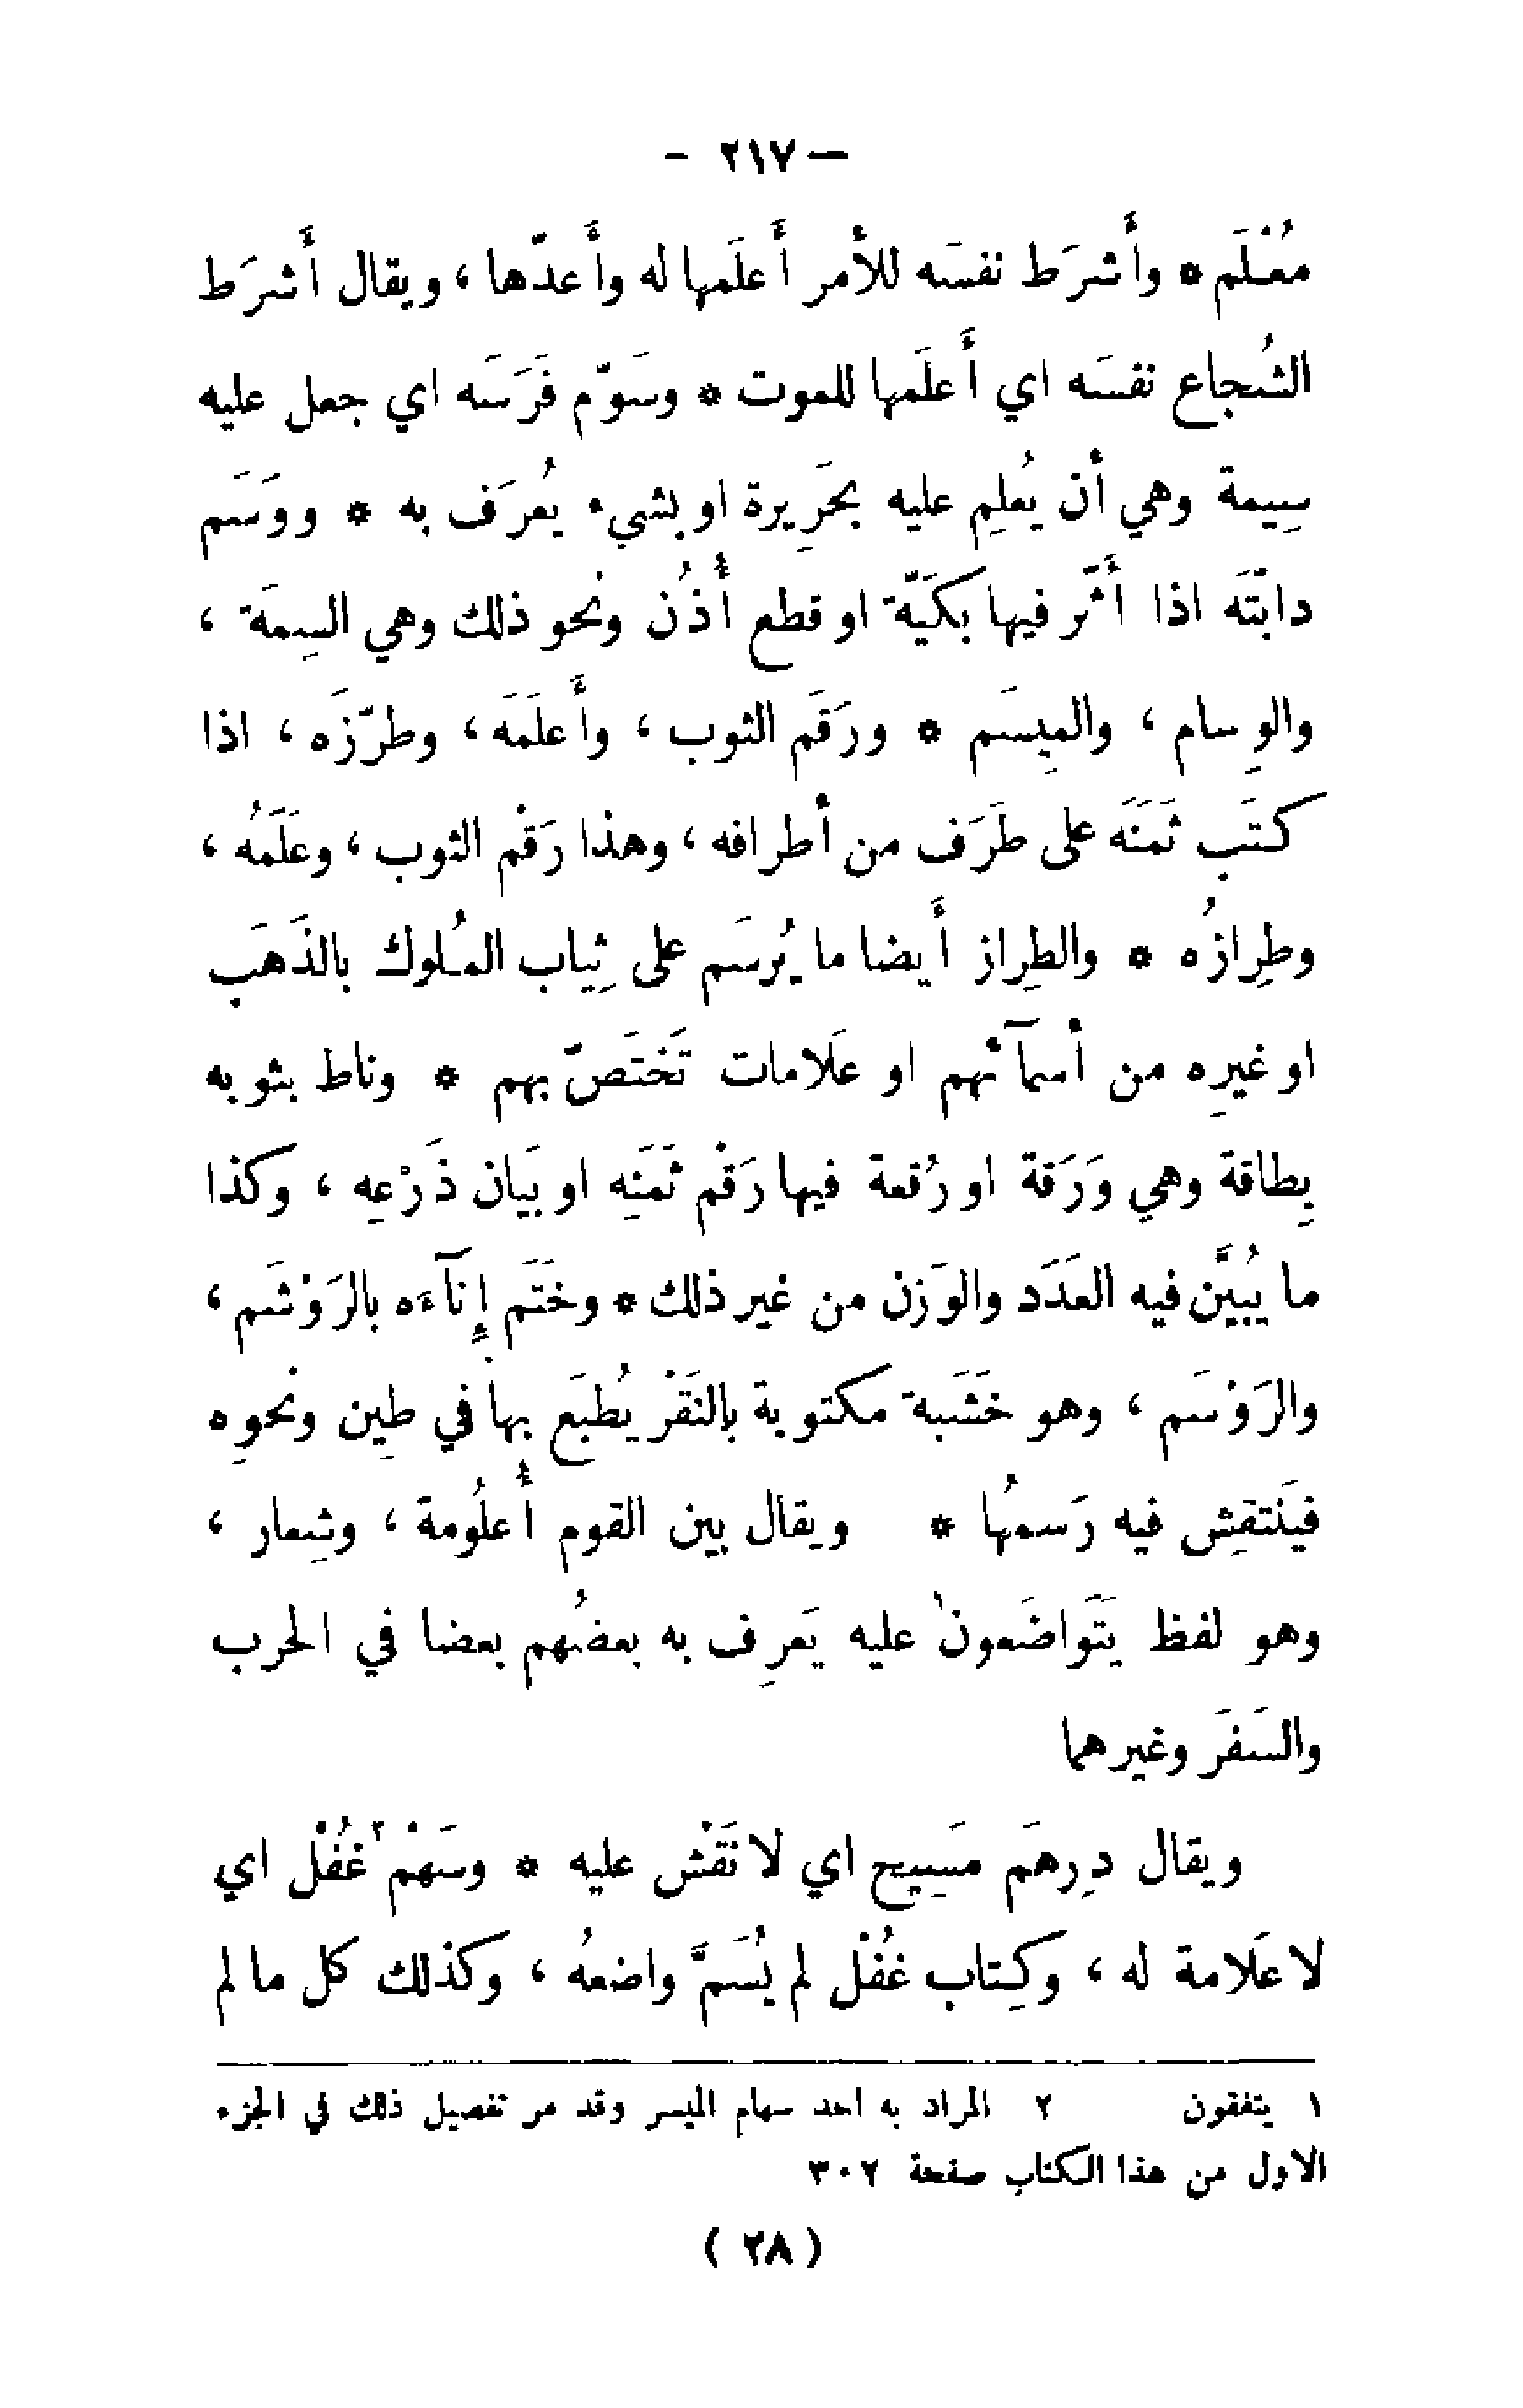 — ٢١٧ -
مُعْلَم * وأَشرَط نفسَه للأمر أَعلَمها له وأَعدّها ، ويقال أَشرَط
الشُجاع نفسَه اي أَعلَمها للموت * وسَوّم فَرَسَه اي جعل عليه
سِيمة وهي أن يُعلِم عليه بحَرِيرة او بشيء يُعرَف به * ووَسَم
دابّتَه اذا أَثّر فيها بكَيّة او قطع أُذُن ونحو ذلك وهي السِمَة ،
والوِسام ، والمِيسَم * ورَقَم الثوب ، وأَعلَمَه ، وطرّزَه ، اذا
كتَب ثَمَنَه على طَرَف من أطرافه ، وهذا رَقْم الثوب ، وعَلَمُه ،
وطِرازُه * والطِراز أَيضا ما يُرسَم على ثِياب المُلوك بالذَهَب
او غيرِه من أسمآئهم او عَلامات تَختَصّ بهم * وناط بثوبه
بِطاقة وهي وَرَقة او رُقعة فيها رَقْم ثَمَنِه او بَيان ذَرْعِه ، وكذا
ما يُبيَّن فيه العَدَد والوَزن من غير ذلك * وختَم إِنآءَه بالرَوْشَم ،
والرَوْسَم ، وهو خَشَبة مكتوبة بالنَقْر يُطبَع بها في طِين ونحوِه
فيَنتقِش فيه رَسمُها * ويقال بين القوم أُعلُومة ، وشِعار ،
وهو لفظ يَتَواضَعون١ عليه يَعرِف به بعضُهم بعضا في الحرب
والسَفَر وغيرهما
ويقال دِرهَم مَسِيح اي لا نَقْش عليه * وسَهْم٢ غُفْل اي
لا عَلامة له ، وكِتاب غُفْل لم يُسَمَّ واضعُه ، وكذلك كل ما لم
١ يتفقون ٢ المراد به احد سهام الميسر وقد مر تفصيل ذلك في الجزء
الاول من هذا الكتاب صفحة ٣٠٢
( ٢٨ )